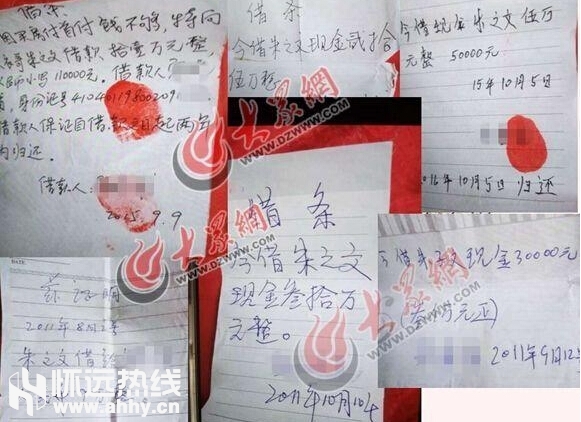 借条
因买房付首付钱不够,
朱之文借款拾壹万元整,
小写110000元。借款人
身份证号
借款人保证自借款之日起两年
内归还。
借款人:
2015.9.9
借条
今借朱之文现金贰拾
伍万整
今借现金朱之文伍万
元整 50000元
15年10月5日
2016年10月5日 归还
大眾網
WWW.DZWWW.COM
借条
今借朱之文
现金叁拾万
元整。
2011年10月10日
大眾網
WWW.DZWWW.COM
今借朱之文现金30000元
(叁万元正)
2011年9月12号
大眾網
WWW.DZWWW.COM
证明
2011年8月2号
朱之文借
怀远热线
www.ahhy.cn